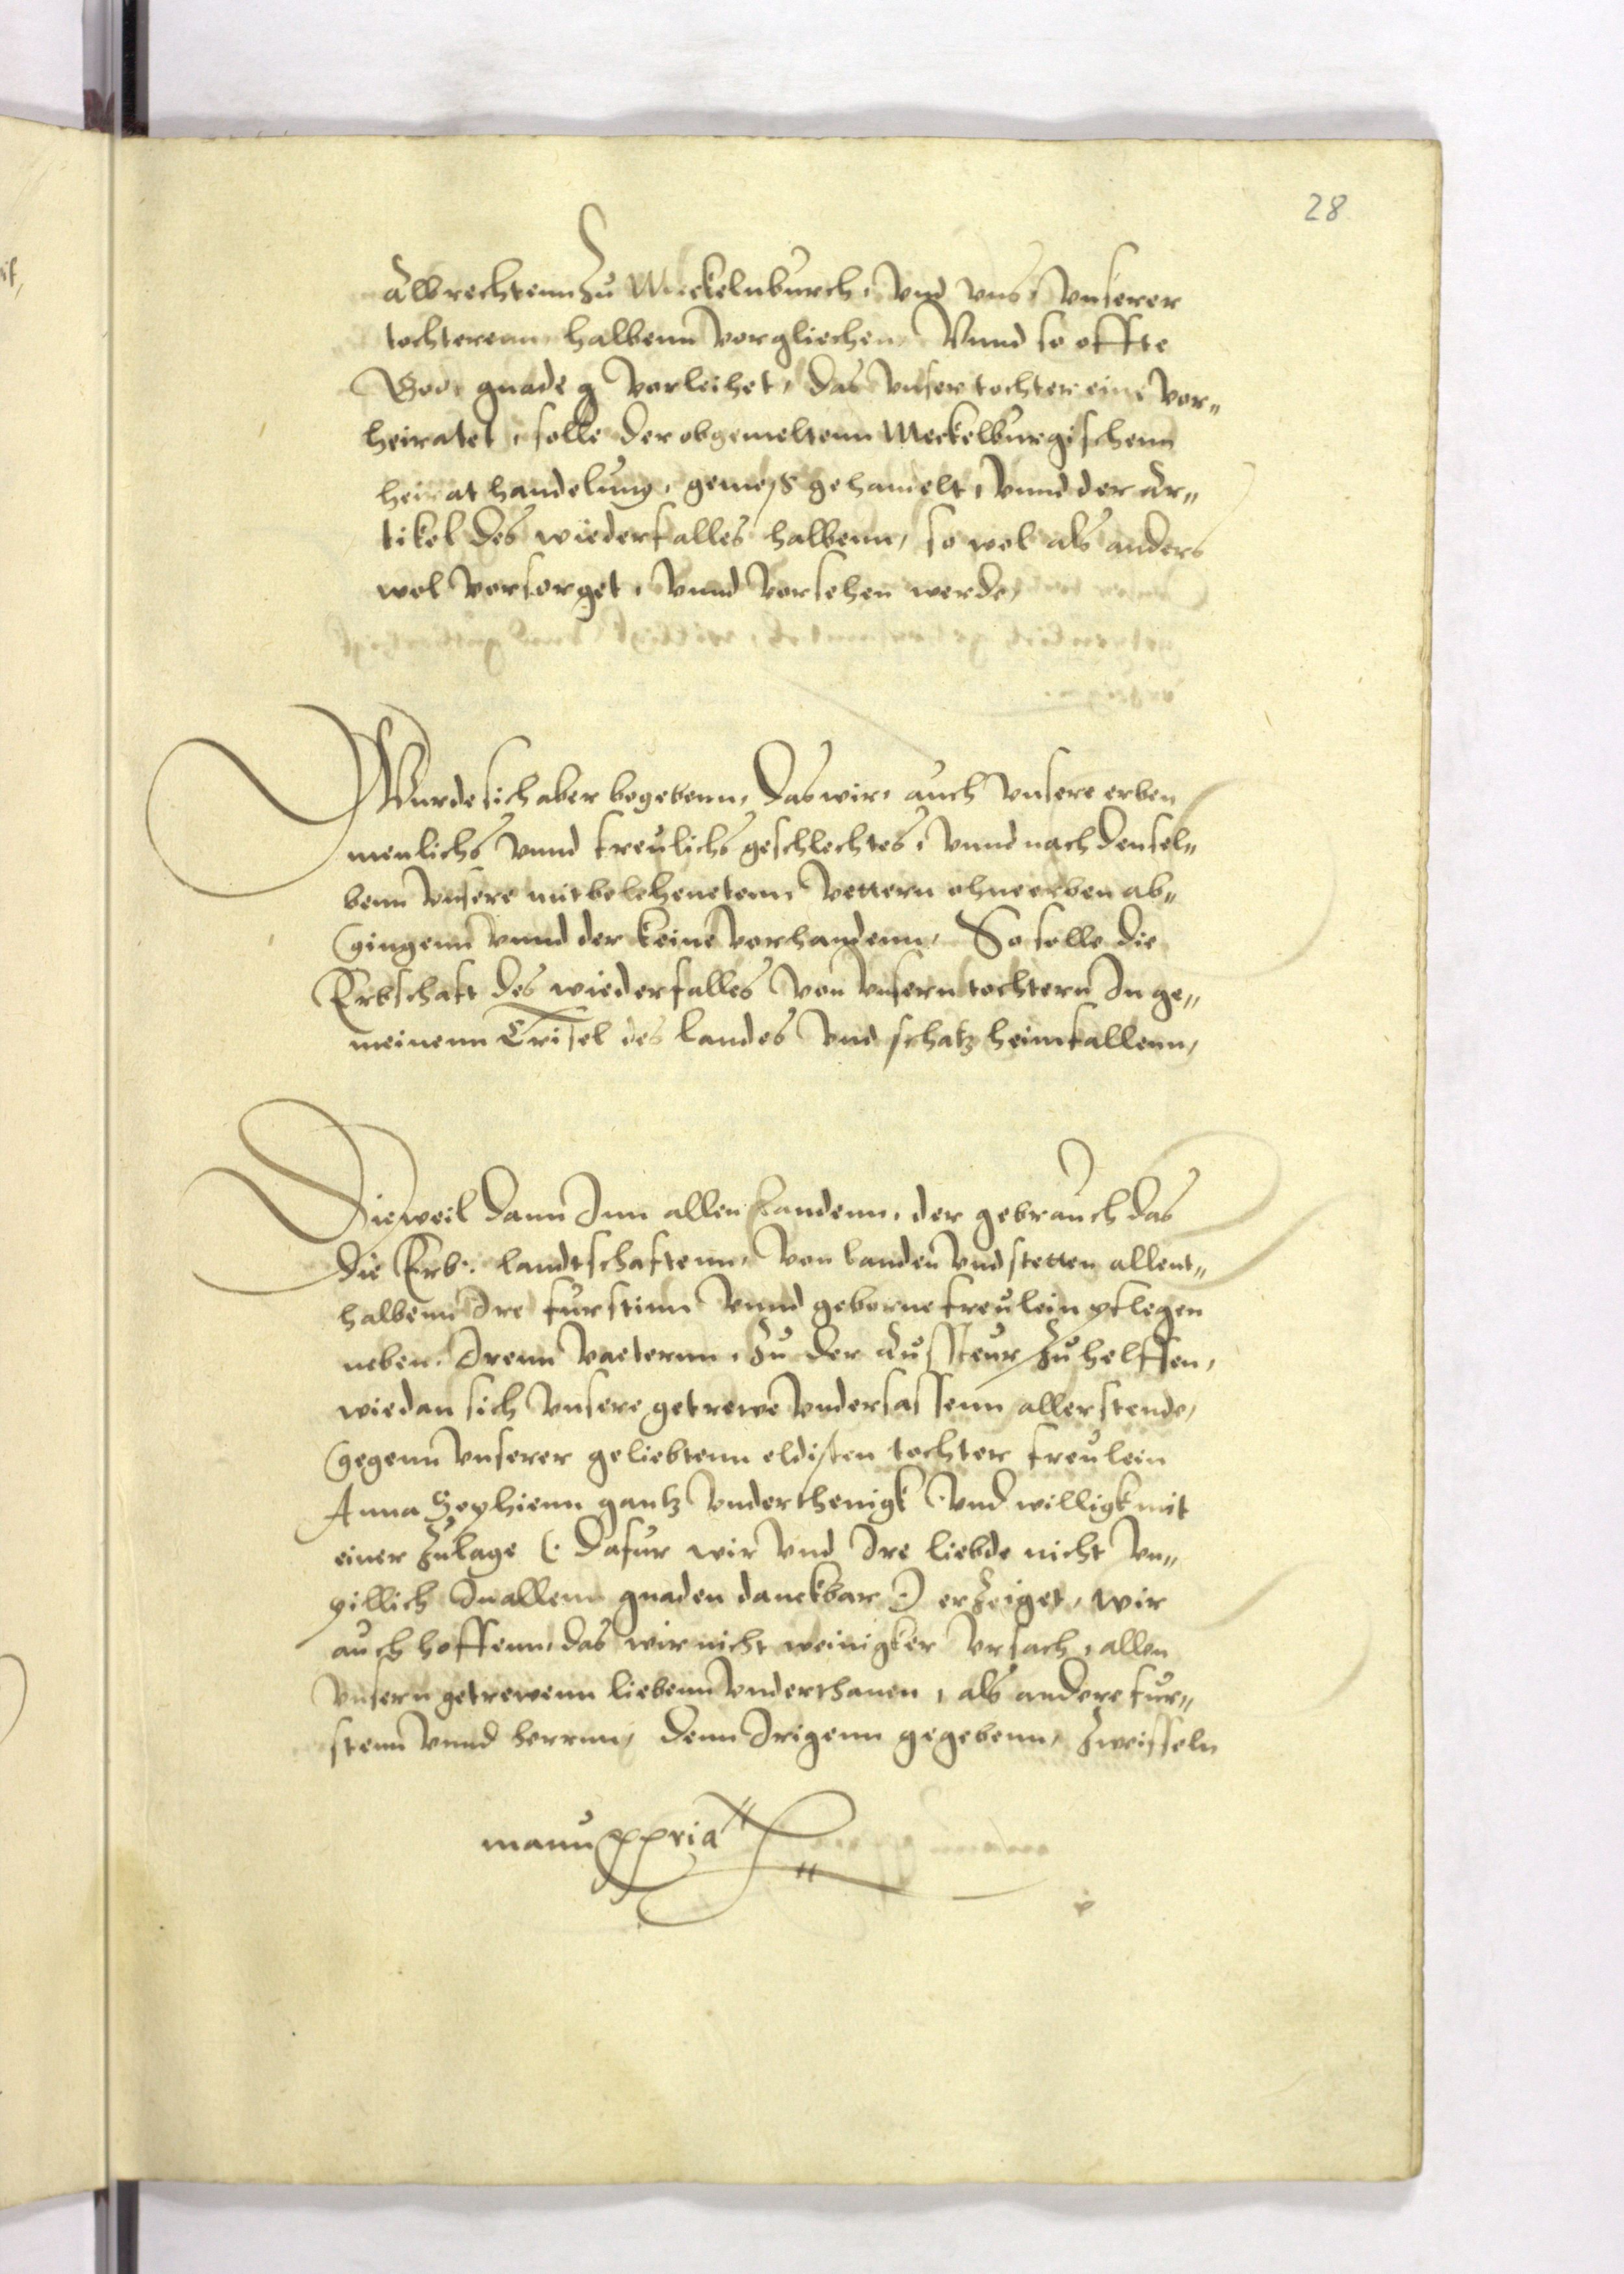 28
Albrechtenn zu Meckelnburch, vnd vns, vnserer
tochterenn halbenn vorgliechen, Vnnd so offte
Got gnade vorleihet, das vnser tochter eine vor„
heiratet, solle der obgemeltenn Meckelburgischenn
heirat handelung, gemeß gehandelt, vnnd der Ar„
tikel des wiederfalles halbenn, so wol als anders
wol vorsorget, vnnd vorsehen werde,
Wurde sich aber begebenn, das wir, auch vnsere erben
menlichs vnnd freulichs geschlechtes, vnnd nach densel„
benn vnsere mitbelehenetenn Vettern ohne erben ab„
gingenn vnnd der keine vorhandenn, So solle die
Erbschaft des wiederfalles von vnsern tochtern In ge„
meinenn Trisel des landes vnd schatz heimfallenn,
Dieweil dann Inn allen Landenn, der gebrauch das
die Erb: landtschaftenn, von landen vnd stetten allent„
halbenn Ire furstinn vnnd geborne freulein pflegen
neben Irenn Vaeternn, zu der Aussteur zu helffen,
wie dan sich vnsere getrewe vndersassenn aller stende,
gegenn vnserer geliebtenn eldisten tochter freulein
Anna Sophienn gantz vnderthenigk vnd willigk mit
einer zulage (: dafur wir vnd Ire liebde nicht vn„
pillich In allenn gnaden danckbar :) erzeiget, wir
auch hoffenn, das wir nicht weinigker vrsach, allen
vnsern getrewenn liebenn vnderthanen, als andere fur„
stenn vnnd herrnn, denn Irigenn gegebenn, zweiffeln
manu ppria